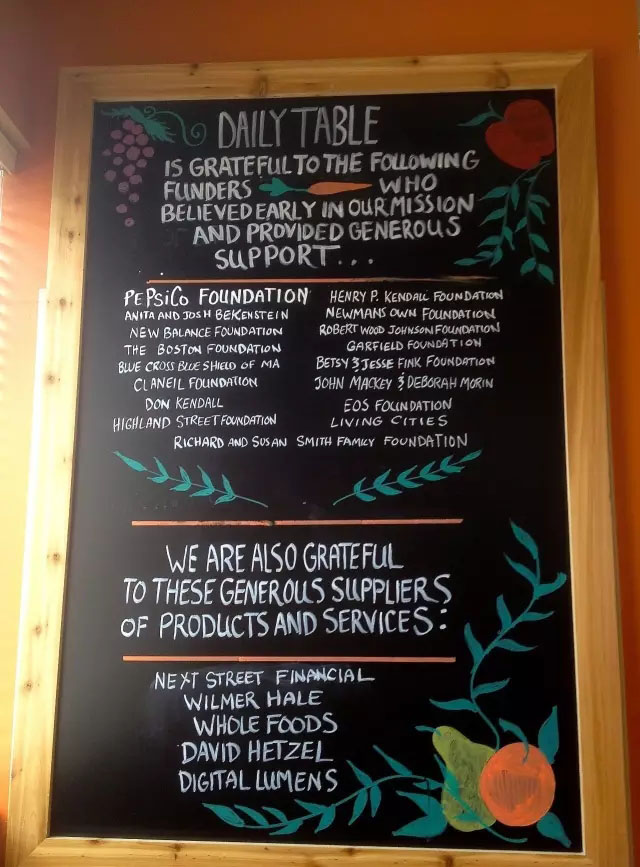 DAILY TABLE
IS GRATEFUL TO THE FOLLOWING
FUNDERS WHO
BELIEVED EARLY IN OUR MISSION
AND PROVIDED GENEROUS
SUPPORT...
PEPSICO FOUNDATION
ANITA AND JOSH BEKENSTEIN
NEW BALANCE FOUNDATION
THE BOSTON FOUNDATION
BLUE CROSS BLUE SHIELD OF MA
CLANEIL FOUNDATION
DON KENDALL
HIGHLAND STREET FOUNDATION
HENRY P. KENDALL FOUNDATION
NEWMANS OWN FOUNDATION
ROBERT WOOD JOHNSON FOUNDATION
GARFIELD FOUNDATION
BETSY & JESSE FINK FOUNDATION
JOHN MACKEY & DEBORAH MORIN
EOS FOUNDATION
LIVING CITIES
RICHARD AND SUSAN SMITH FAMILY FOUNDATION
WE ARE ALSO GRATEFUL
TO THESE GENEROUS SUPPLIERS
OF PRODUCTS AND SERVICES:
NEXT STREET FINANCIAL
WILMER HALE
WHOLE FOODS
DAVID HETZEL
DIGITAL LUMENS